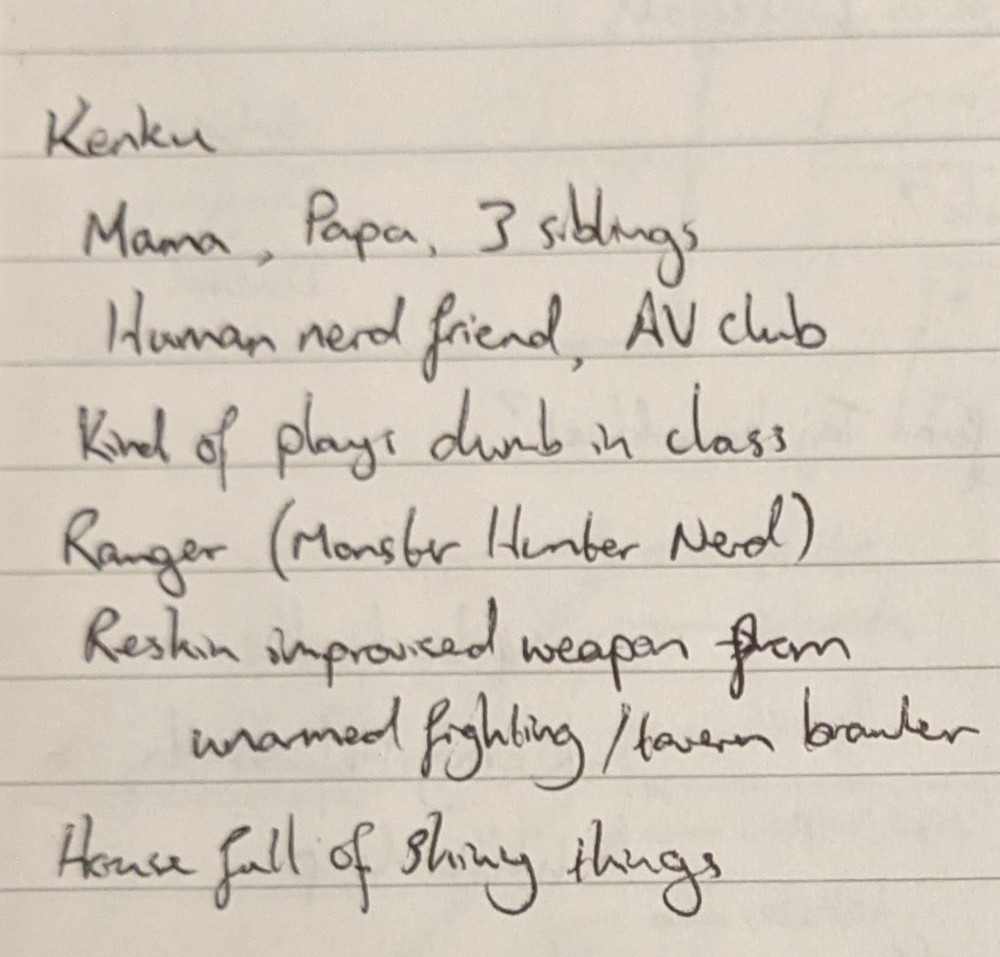 Kenku
Mama, Papa, 3 siblings
Human nerd friend, AV club
Kind of plays dumb in class
Ranger (Monster Hunter Nerd)
Reskin improvised weapon from
unarmed fighting / tavern brawler
House full of shiny things